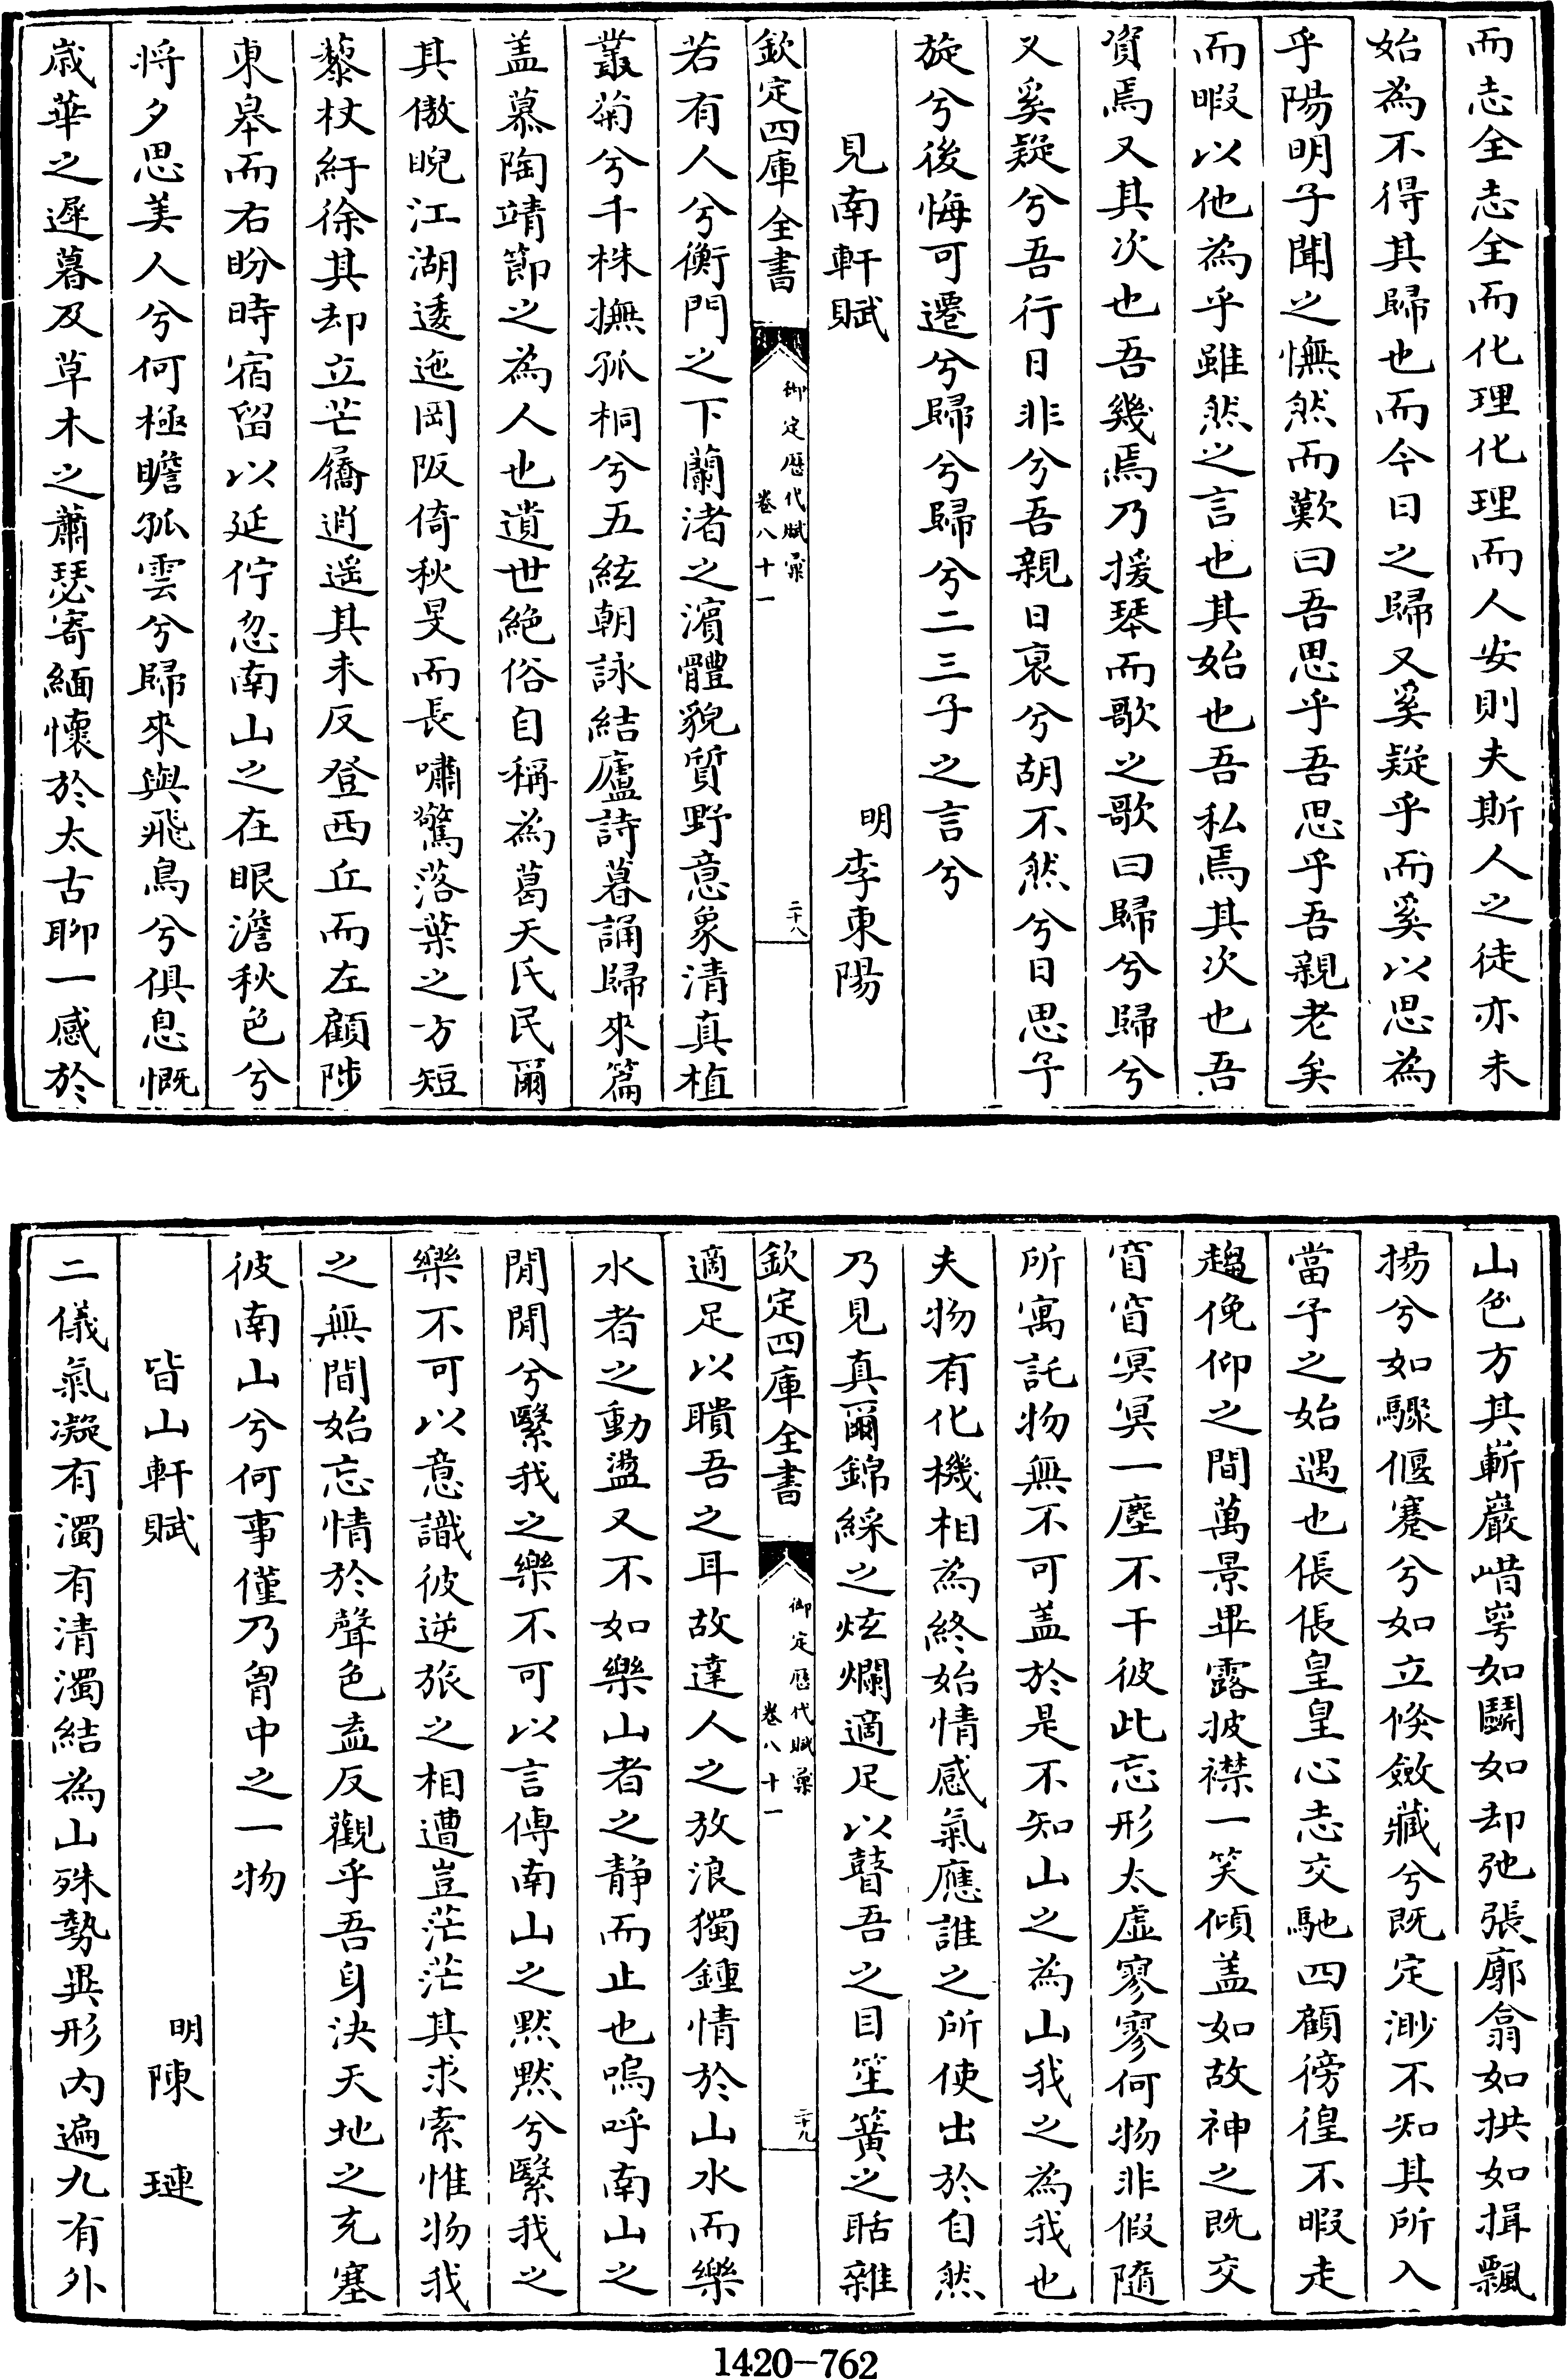 而志全志全而化理化理而人安則夫斯人之徒亦未
始為不得其歸也而今日之歸又奚疑乎而奚以思為
乎陽明子聞之憮然而歎曰吾思乎吾思乎吾親老矣
而暇以他為乎雖然之言也其始也吾私焉其次也吾
資焉又其次也吾幾焉乃援琴而歌之歌曰歸兮歸兮
又奚疑兮吾行日非兮吾親日衰兮胡不然兮日思予
旋兮後悔可遷兮歸兮歸兮二三子之言兮
見南軒賦 明李東陽
欽定四庫全書 御定歷代賦彙 卷八十一 二十八
若有人兮衡門之下蘭渚之濱體貌質野意象清真植
叢菊兮千株撫孤桐兮五絃朝詠結廬詩暮誦歸來篇
盖慕陶靖節之為人也遺世絶俗自稱為葛天氏民爾
其傲睨江湖逶迤岡阪倚秋旻而長嘯驚落葉之方短
藜杖紆徐其却立芒屩逍遥其未反登西丘而左顧陟
東皋而右盼時宿留以延佇忽南山之在眼澹秋色兮
将夕思美人兮何極瞻孤雲兮歸來與飛鳥兮俱息慨
歲華之遲暮及草木之蕭瑟寄緬懷於太古聊一感於
山色方其嶄巖㟙崿如鬬如却弛張廓翕如拱如揖飄
揚兮如驟偃蹇兮如立倏斂藏兮既定渺不知其所入
當予之始遇也倀倀皇皇心志交馳四顧傍徨不暇走
趨俛仰之間萬景畢露披襟一笑傾盖如故神之既交
窅窅冥冥一塵不干彼此忘形太虛寥寥何物非假隨
所寓託物無不可盖於是不知山之為山我之為我也
夫物有化機相為終始情感氣應誰之所使出於自然
乃見真爾錦綵之炫爛適足以瞽吾之目笙簧之聒雜
欽定四庫全書 御定歷代賦彙 卷八十一 二十九
適足以聵吾之耳故達人之放浪獨鍾情於山水而樂
水者之動盪又不如樂山者之靜而止也嗚呼南山之
閒閒兮繄我之樂不可以言傳南山之黙黙兮繄我之
樂不可以意識彼逆旅之相遭豈茫茫其求索惟物我
之無間始忘情於聲色盍反觀乎吾身決天地之充塞
彼南山兮何事僅乃胷中之一物
皆山軒賦 明陳璉
二儀氣凝有濁有清濁結為山殊勢異形内遍九有外
1420-762